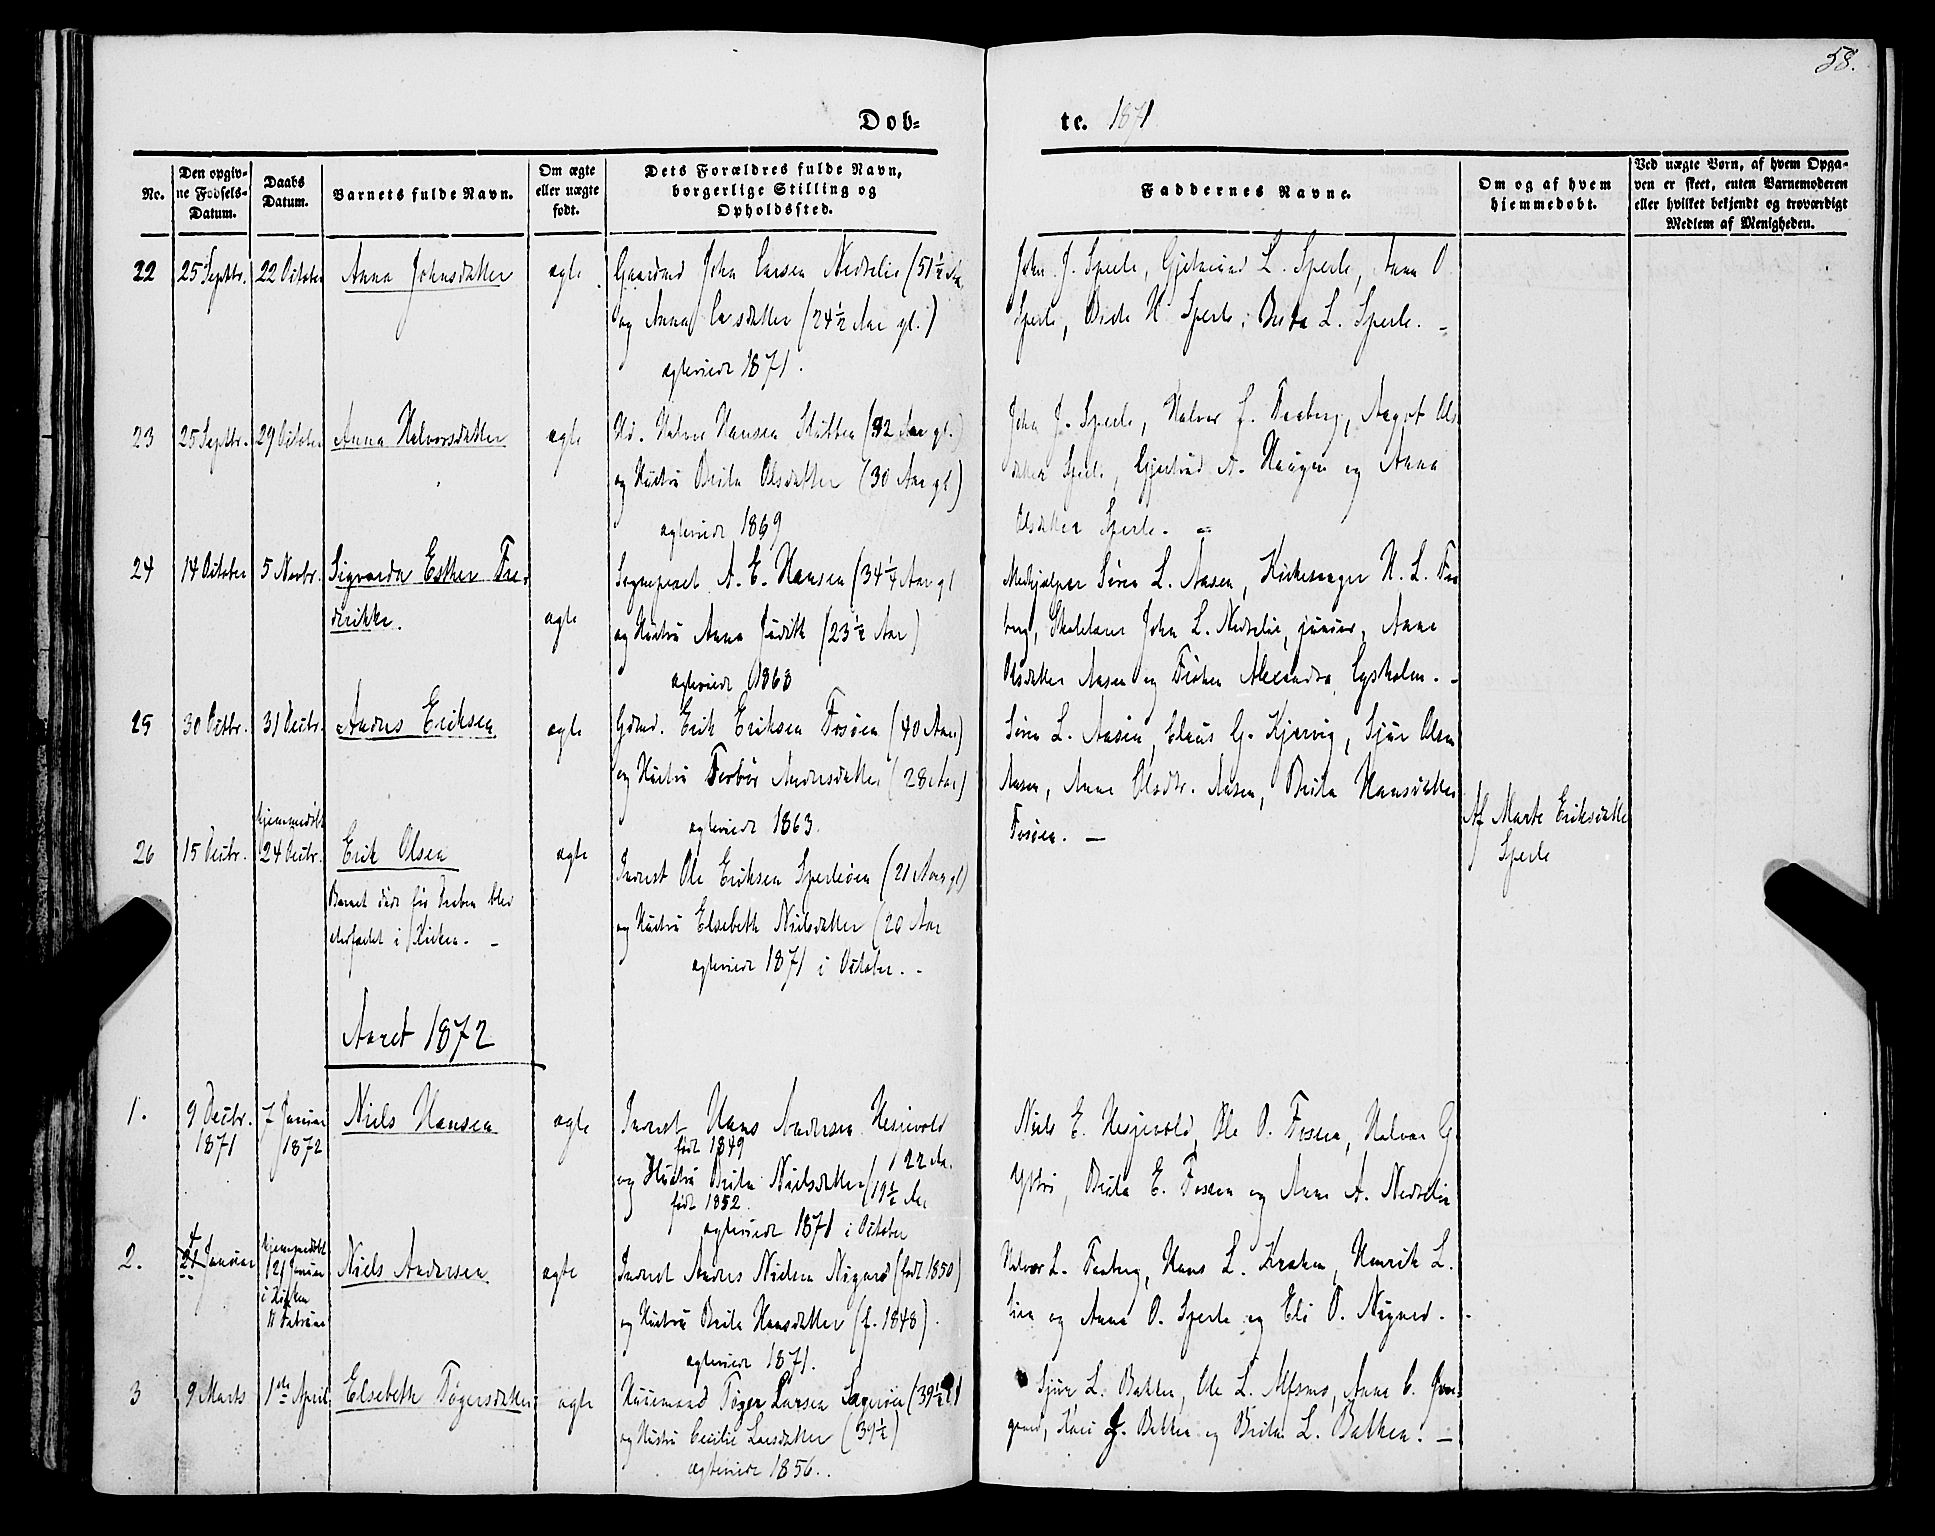 58.
Dob-
te. 1871
No.
Den opgiv-
ne Fødsels-
Datum.
Daabs
Datum.
Barnets fulde Navn.
Om ægte
eller uægte
født.
Dets Forældres fulde Navn,
borgerlige Stilling og
Opholdssted.
Faddernes Navne.
Om og af hvem
hjemmedøbt.
Ved uægte Børn, af hvem Opga-
ven er skeet, enten Barnemoderen
eller hvilket bekjendt og troværdigt
Medlem af Menigheden.
22 25 Septbr. 22 October Anna Johnsdatter ægte Gaardmd John Larsen Nedrelie (51½ Aar
og Anna Larsdatter (24½ Aar gl.)
ægteviede 1871.
John J. Sperle, Gjertrud L. Sperle, Anna O.
Sperle, Brite H. Sperle, Brita L. Sperle.
23 25 Septbr. 29 October Anna Halvorsdatter ægte Halvor Hansen (32 Aar gl.)
og Hustru Brita Olsdatter (30 Aar gl)
ægteviede 1869
John J. Sperle, Halvor J. Faaberg, Aagot Ols-
datter Sperle, Gjertrud A. Haugen og Anna
Olsdatter Sperle.
24 14 October 5 Novbr. Sigvarda Esther Fre-
derikke. ægte
Sognepræst A. E. Hansen (34¼ Aar gl
og Hustru Anna Judith (23½ Aar)
ægteviede 1868
Medhjælper Søren L. Aasen, Kirkesanger H. L. Faa-
berg, Skolelærer John L. Nedrelie, junior, Anna
Olsdatter Aasen og Frøken Alexandra Lysholm.
25 30 Octbr. 31 Decbr. Anders Eriksen ægte Gdmd. Erik Eriksen Fosøen (40 Aar)
og Hustru Torbør Andersdatter (28 Aar)
ægteviede 1863.
Søren L. Aasen, Claus G. Kjervig, Sjur Olsen
Aasen, Anna Olsdtr. Aasen, Brita Hansdatter
Fosøen.
26 15 Decbr. hjemmedøbt
24 Decbr. Erik Olsen ægte
Barnet døde før Daaben blev
stadfæstet i Kirken.
Inderst Ole Eriksen Sperleøen (21 Aar gl)
og Hustru Elsebeth Nielsdatter (20 Aar
ægteviede 1871 i October.
Af Marte Eriksdatter
Sperle
Aaret 1872
1. 9 Decbr. 7 Januar Niels Hansen ægte Inderst Hans Andersen Hesjevold
1871 1872 født 1849 22 Aar
og Hustru Brita Nielsdatter (19½ Aar
født 1852.
ægteviede 1871 i October
Niels E. Hesjevold, Ole O. Fosøen, Halvor G.
Yttri, Brita E. Fosøen og Anna A. Nedrelie
2. Januar hjemmedøbt
21 Januar
i Kirken
11 Februar
Niels Andersen ægte Inderst Anders Nielsen Nigard (født 1850)
og Hustru Brita Hansdatter (f. 1848).
ægteviede 1871.
Halvor L. Faaberg, Hans L. Kroken, Henrik L.
Lien og Anna O. Sperle og Eli O. Nigard.
3 9 Marts 1ste April Elsebeth Tøgersdatter ægte Huusmand Tøger Larsen (39½
og Hustru Cecilie Larsdatter (39½)
ægteviede 1856.
Sjur L. Bakken, Ole L. Alsmo, Anna C. 
Kari J. Bakken og Brita L. Bakken.